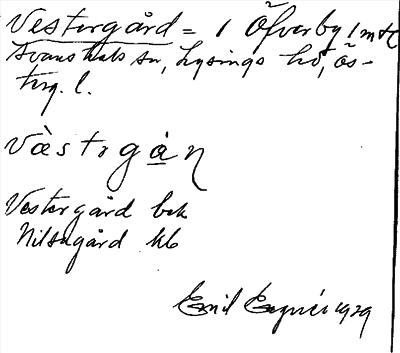 Vestergård = 1 Öfverby 1 mtl
Svanshals sn, Lysings hd, Ös-
terg. l.
Västrgån
Vestergård bok
Nilsagård kb
Emil 1929